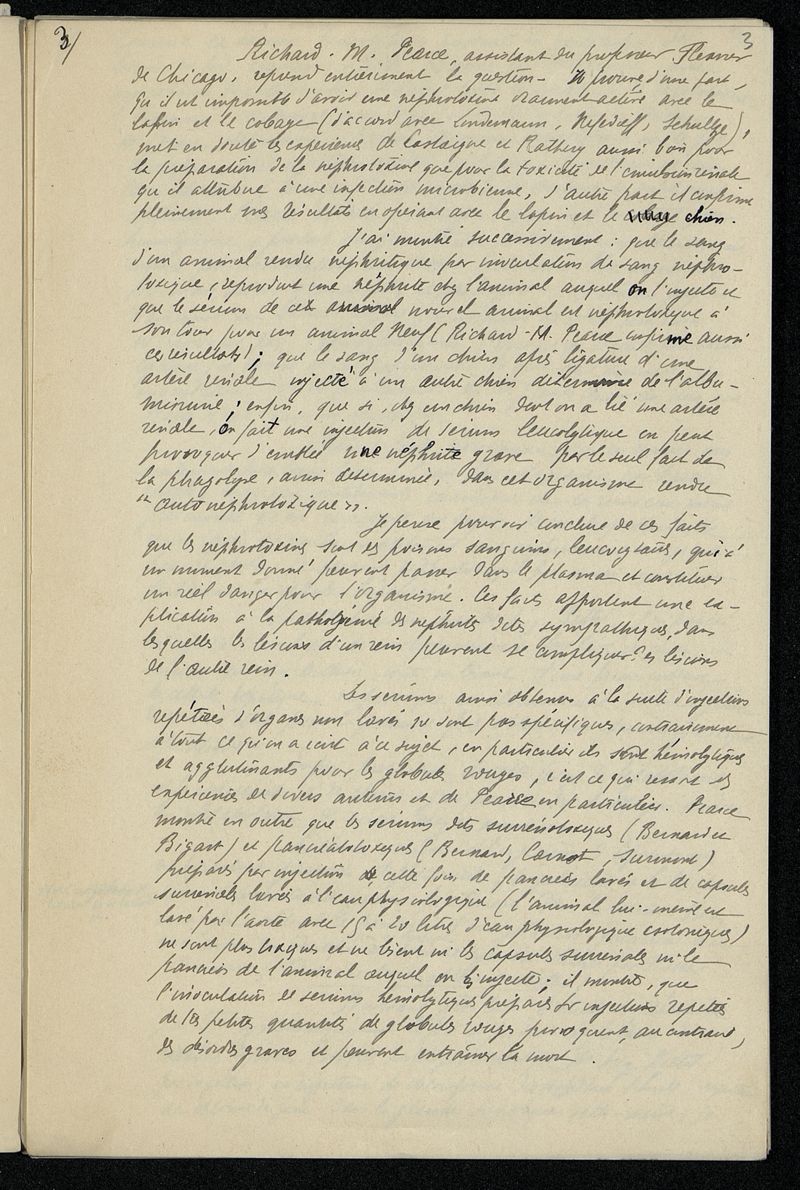 3/ 3
Richard. M. Pearce, assistant du professeur Flexner
de Chicago, reprend entièrement la question - Il prouve d'une part,
qu'il est impossible d'avoir une néphrotoxine vraiment active avec le
lapin et le cobaye (d'accord avec Lindemann, Nefedieff, Schultze),
met en doute les expériences de Castaigne et Rathery aussi bien pour
la préparation de la néphrotoxine que pour la toxicité de l'émulsion rénale
qu'il attribue à une infection microbienne, d'autre part il confirme
pleinement mes résultats en opérant avec le lapin et le chien.
J'ai montré successivement : que le sang
d'un animal rendu néphritique par inoculation de sang néphro-
toxique, reproduit une néphrite chez l'animal auquel on l'injecte et
que le sérum de cet animal nouvel animal est néphrotoxique à
son tour pour un animal neuf (Richard-M. Pearce confirme aussi
ces résultats); que le sang d'un chien après ligature d'une
artère rénale injecté à un autre chien détermine de l'albu-
minurie; enfin, que si, chez un chien dont on a lié une artère
rénale, on fait une injection de sérum leucolytique on peut
provoquer d'emblée une néphrite grave par le seul fait de
la phagolyse, ainsi déterminée, dans cet organisme rendu
"autonéphrotoxique".
Je pense pouvoir conclure de ces faits
que les néphrotoxines sont des poisons sanguins, leucocytaires, qui à
un moment donné peuvent passer dans le plasma et constituer
un réel danger pour l'organisme. Ces faits apportent une ex-
plication à la pathogénie des néphrites dites sympathiques, dans
lesquelles les lésions d'un rein peuvent se compliquer des lésions
de l'autre rein.
Les sérums ainsi obtenus à la suite d'injections
repétées d'organes non lavés ne sont pas spécifiques, contrairement
à tout ce qu'on a écrit à ce sujet, en particulier ils sont hémolytiques
et agglutinants pour les globules rouges, c'est ce qui ressort des
expériences de divers auteurs et de Pearce en particulier. Pearce
montre en outre que les sérums dits surrénotoxiques (Bernard et
Bigart) et pancréatotoxiques (Bernard, Carnot, Surmont)
préparés par injection de, cette fois de pancréas lavés et de capsules
surrénales lavés à l'eau physiologique (l'animal lui-même est
lavé par l'aorte avec 15 à 20 litres d'eau physiologique isotonique)
ne sont plus toxiques et ne lèsent ni les capsules surrénales ni le
pancréas de l'animal auquel on l'injecte; il montre, que
l'inoculation de sérums hémolytiques préparés par injections repetées
de très petites quantités de globules rouges provoquent, au contraire,
des désordres graves et peuvent entraîner la mort.